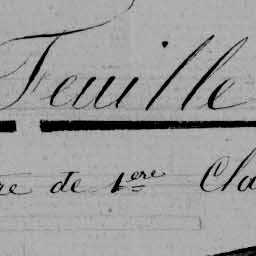 Feuille
re de 1ere Cla